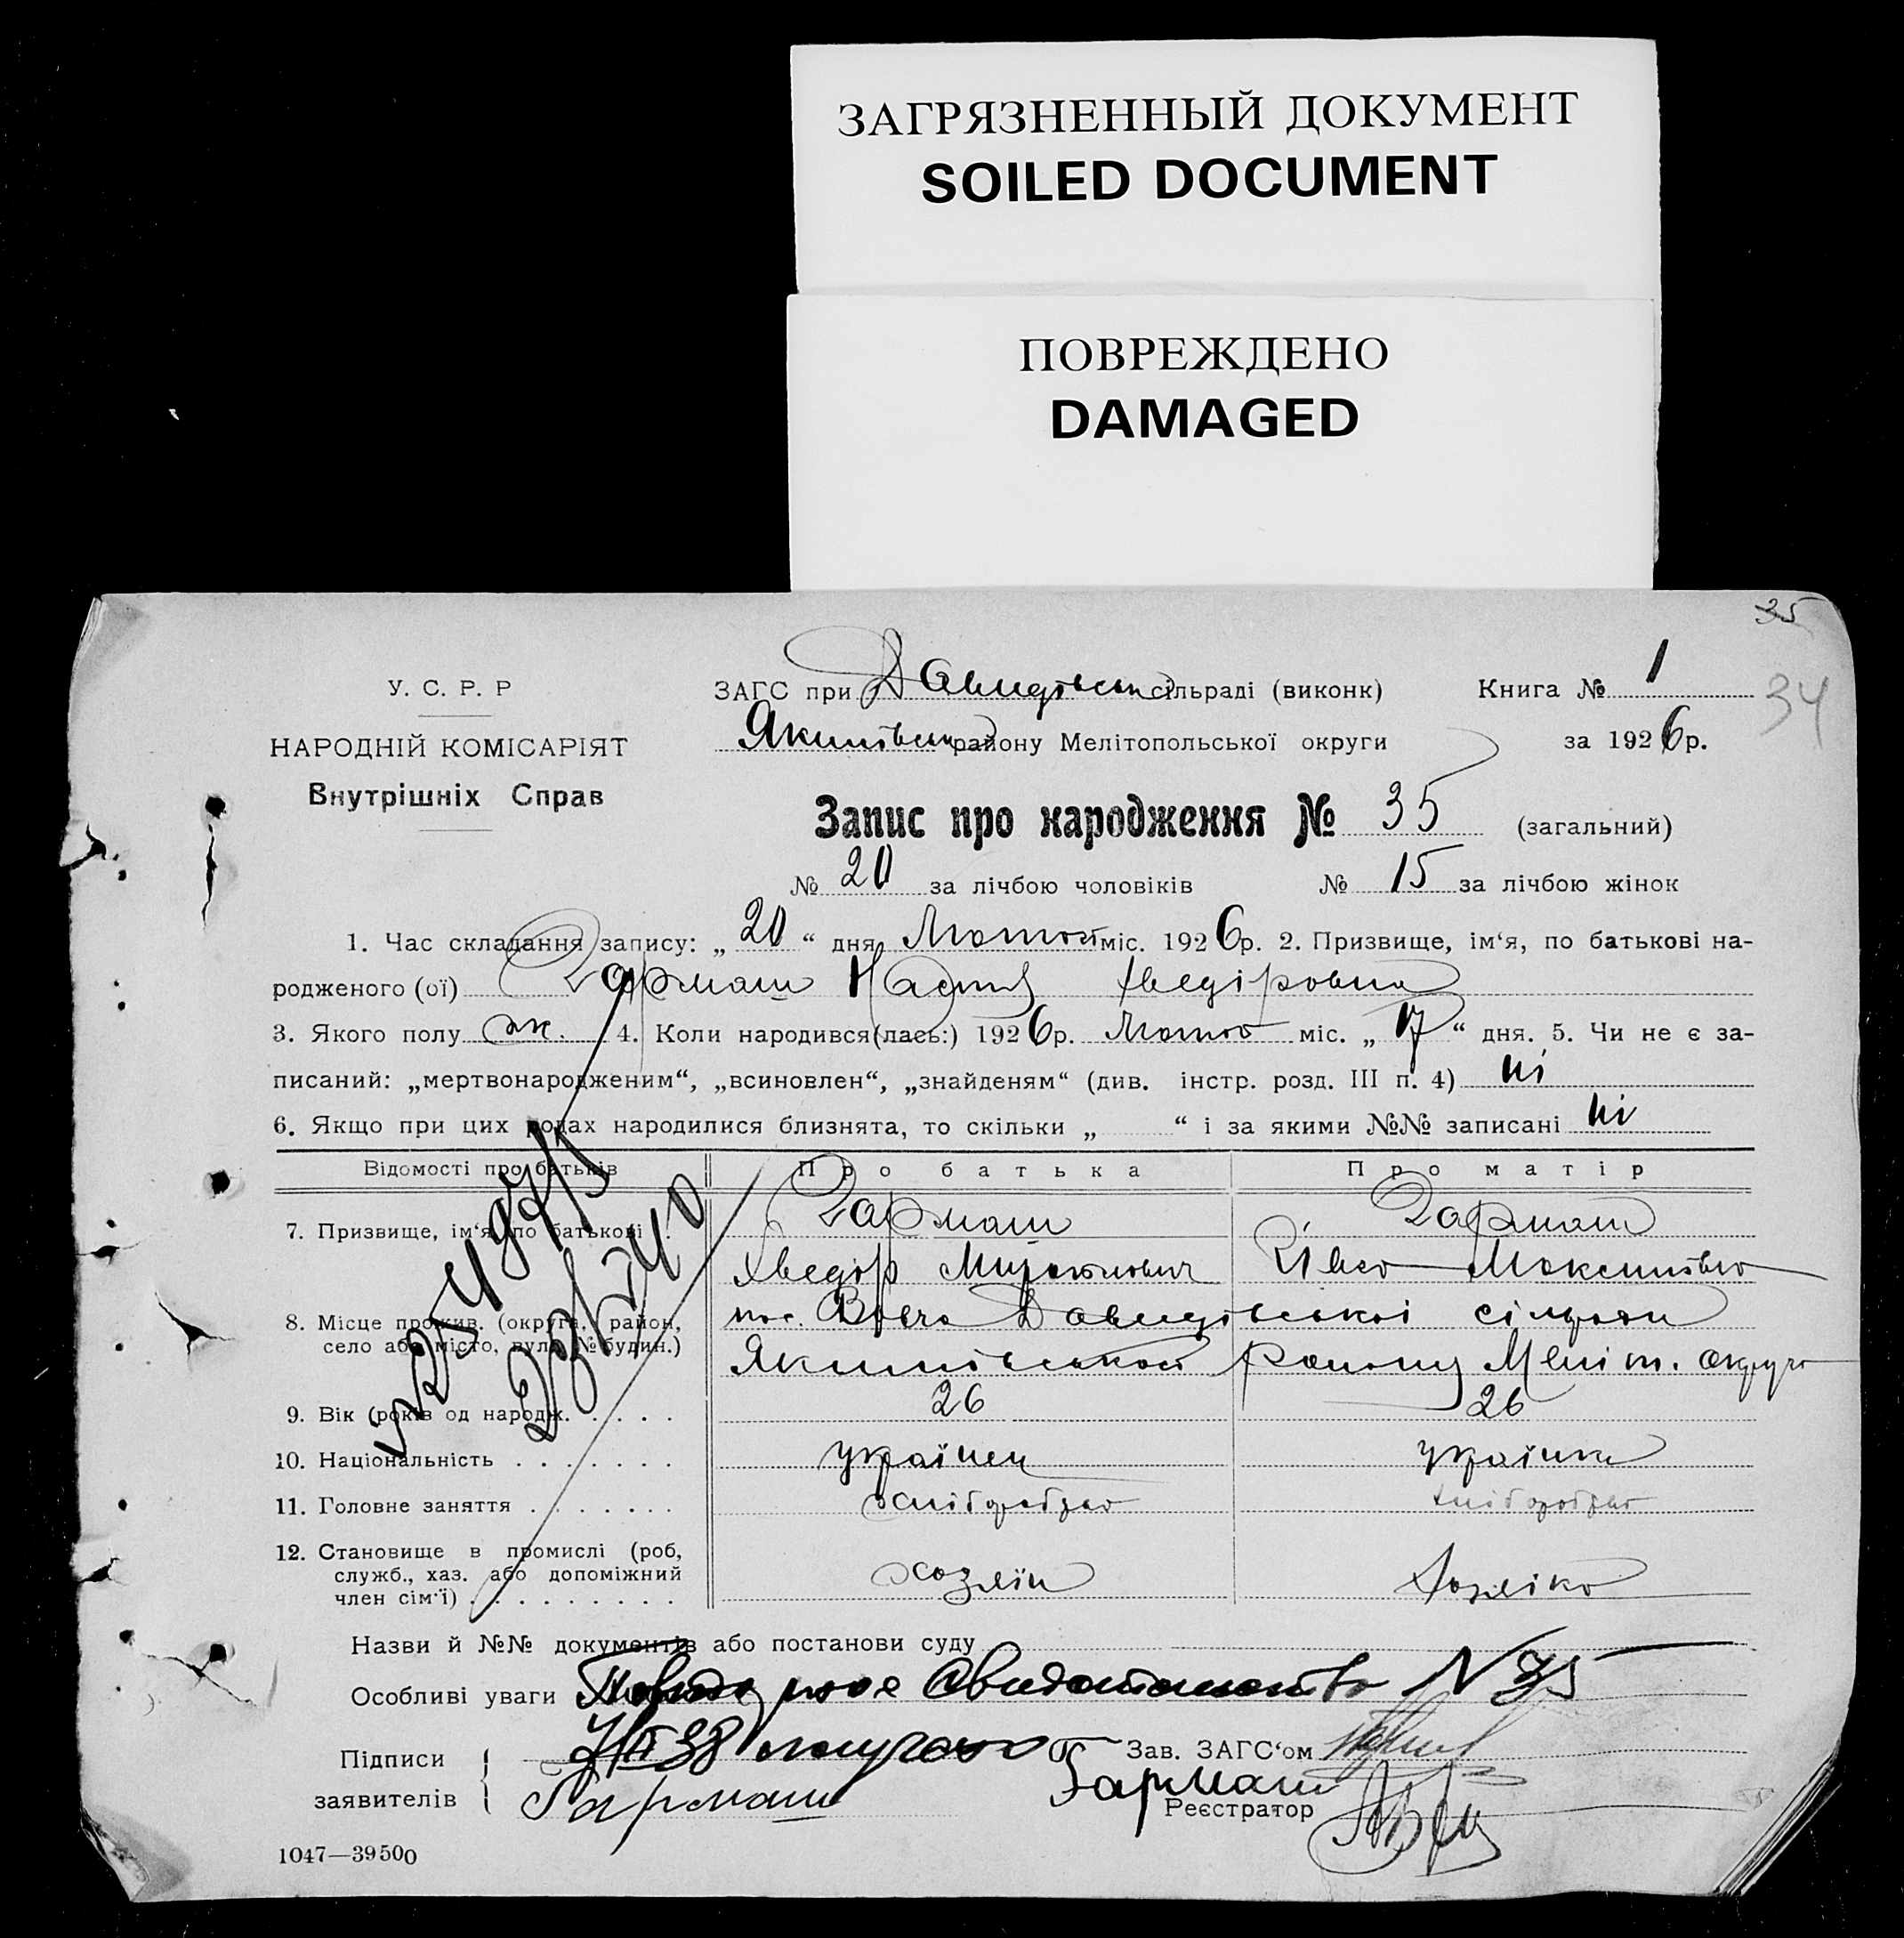 ЗАГРЯЗНЕННЫЙ ДОКУМЕНТ
SOILED DOCUMENT
ПОВРЕЖДЕНО
DAMAGED
35
34
У. С. Р. Р
НАРОДНІЙ КОМІСАРІЯТ
Внутрішніх Справ
ЗАГС при Давидівськ сільраді (виконк) Книга № 1
Якимівськ району Мелітопольської округи за 1926 р.
Запис про народження № 35 (загальний)
№ 20 за лічбою чоловіків № 15 за лічбою жінок
1. Час складання запису: „ 20 “ дня Лютого міс. 1926 р. 2. Призвище, ім‘я, по батькові на-
родженого (ої) Гармаш Настя Хведіровна
3. Якого полу ж. 4. Коли народився(лась:) 1926 р. Лютого міс. „ 17 “ дня. 5. Чи не є за-
писаний: „мертвонародженим“, „всиновлен“, „знайденям“ (див. інстр. розд. III п. 4) ні
6. Якщо при цих родах народилися близнята, то скільки „ “ і за якими №№ записані ні
Відомості про батьків Про батька Про матір
7. Призвище, ім‘я, по батькові . Гармаш Гармаш
Хведір
8. Місце прожив. (округа, район, пос. Вовча Давидівської сільради
село або місто, вул. № будин.) Якимівського району Меліт. округи
9. Вік (років од народж. . . . . 26 26
10. Національність . . . . . . . українец українка
11. Головне заняття . . . . . . . хліборобство хліборобство
12. Становище в промислі (роб,
служб., хаз. або допоміжний хозяїн хозяіка
член сім‘ї) . . . . . . . . . .
Назви й №№ документів або постанови суду
Особливі уваги свидетельство N 35
Підписи получено Зав. ЗАГС‘ом
заявителів Гармаш Гармаш Реєстратор
1047—39500